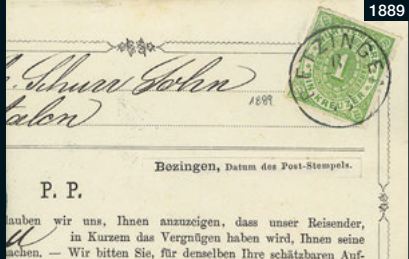 1889
EZINGE
1
KREUZER
Schurr Sohn
1889
Aalen
Bezingen, Datum des Post-Stempels.
P. P.
lauben wir uns, Ihnen anzuzeigen, dass unser Reisender,
in Kurzem das Vergnügen haben wird, Ihnen seine
achen. — Wir bitten Sie, für denselben Ihre schätzbaren Auf-